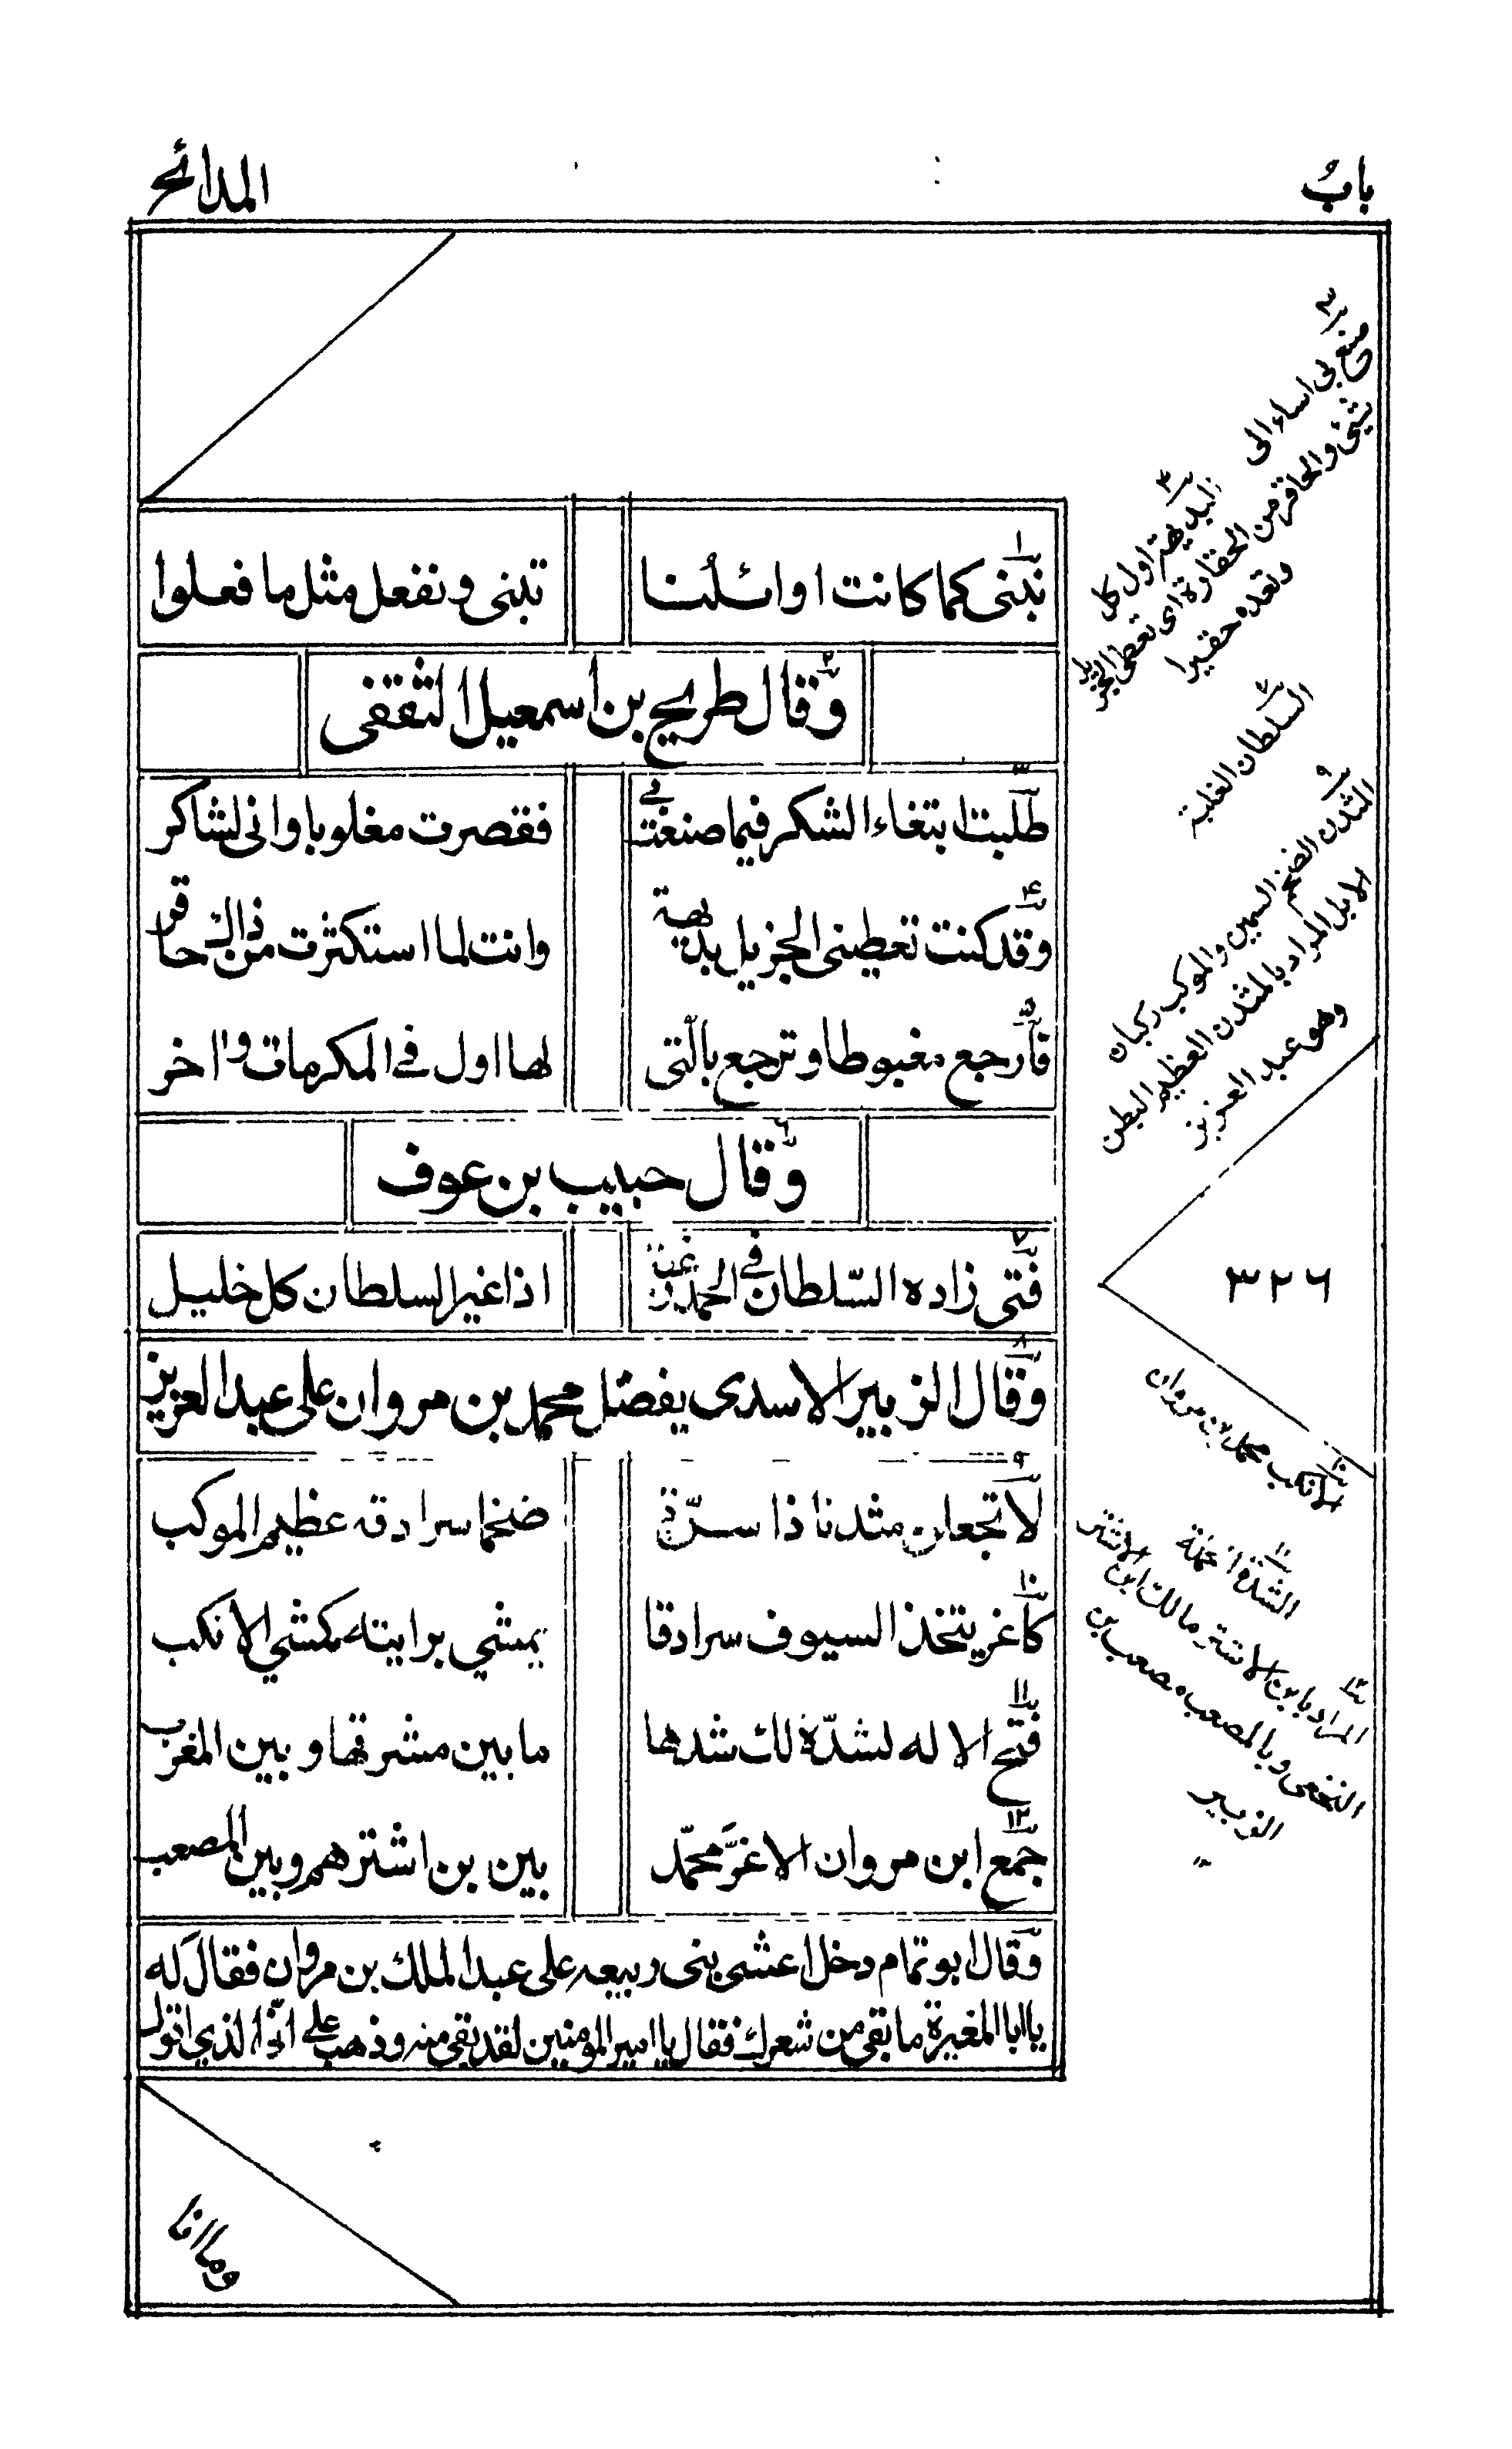 باب المدائح
١ نبنى كما كانت اوائلُنا تبنى ونفعل مثل ما فعلوا
٢ وقال طريح بن اسمعيل الثقفى
٣ طلبت ابتغاء الشكر فيما صنعت فى فقصرت مغلوبا وانى لشاكر
٤ وقد كنت تعطينى الجزيل بديهة وانت لما استكثرت من ذاك حاقر
٥ فارجع مغبوطا وترجع بالتى لها اول فے المكرمات واخر
٦ وقال حبيب بن عوف
٧ فتى زاده السّلطان فے الحمد رغبة اذا غير السلطان كل خليل
٨ وقال الزبير الاسدى يفضّل محمد بن مروان على عبد العزيز
٩ لا تجعلن مثدنا ذا سرّة ضخما سرادقه عظيم الموكب
١٠ كاغر يتخذ السيوف سرادقا يمشي برايته كمشي الانكب
١١ فتح الاله لشدّة لك شدها ما بين مشرقها وبين المغرب
١٢ جمع ابن مروان الاغرَّ محمّد بين بن اشترهم وبين المصعب
وقال ابو تمام دخل اعشى بنى ربيعه على عبد الملك بن مروان فقال له
يا ابا المغيرة ما بقى من شعرك فقال يا امير المومنين لقد بقى منه وذهب على انّ الذي اقول
وما انا
٣ صنع بى اساء الى
٤ البديهة اول كل
شئى والحاقر من الحقارة اى تعطى الجزيل
وتعده حقيرا
السلطان الغلبة
٩ المثدن الضخم السمين والموكب ركبان
الابل المراد بالمثدن العظيم البطن
وهو عبد العزيز
٣٢٦
١٠ الانكب محمد بن مروان
١١ الشدة الحملة
١٢ المراد بابن الاشتر مالك ابن الاشتر
النخعى وبالمصعب مصعب بن
الزبير
١٢